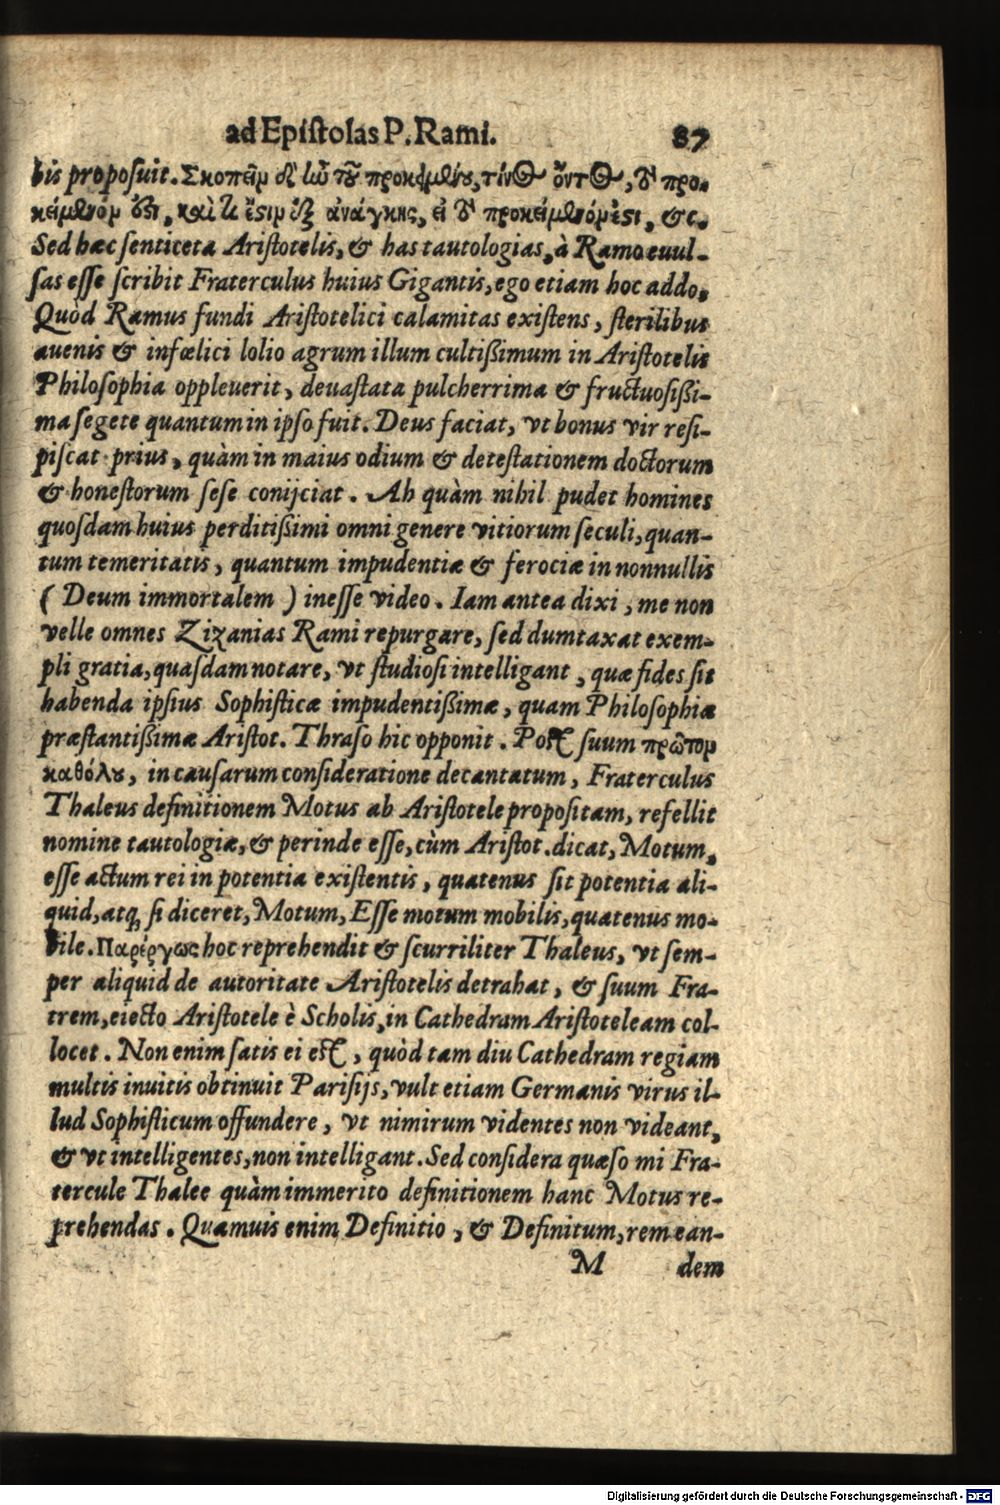 ad Epiſtolas P. Rami. 87
bis propoſuit. Σκοπεῖν τίνος ὄντος, προ-
κείμενόν ἐστι, ἔστιν ἐξ ἀνάγκης, εἰ προκείμενόν ἐστι, &c.
Sed hæc ſenticeta Ariſtotelis, & has tautologias, à Ramo euul-
ſas eſſe ſcribit Fraterculus huius Gigantis, ego etiam hoc addo,
Quòd Ramus fundi Ariſtotelici calamitas exiſtens, ſterilibus
auenis & infœlici lolio agrum illum cultißimum in Ariſtotelis
Philoſophia oppleuerit, deuaſtata pulcherrima & fructuoſißi-
ma ſegete quantum in ipſo fuit. Deus faciat, vt bonus vir reſi-
piſcat prius, quàm in maius odium & deteſtationem doctorum
& honeſtorum ſeſe conijciat. Ah quàm nihil pudet homines
quoſdam huius perditißimi omni genere vitiorum ſeculi, quan-
tum temeritatis, quantum impudentiæ & ferociæ in nonnullis
( Deum immortalem ) ineſſe video. Iam antea dixi, me non
velle omnes Zizanias Rami repurgare, ſed dumtaxat exem-
pli gratia, quaſdam notare, vt ſtudioſi intelligant, quæ fides ſit
habenda ipſius Sophiſticæ impudentißimæ, quam Philoſophiæ
præſtantißimæ Ariſtot. Thraſo hic opponit. Poſt ſuum πρῶτον
καθόλου, in cauſarum conſideratione decantatum, Fraterculus
Thaleus definitionem Motus ab Ariſtotele propoſitam, refellit
nomine tautologiæ, & perinde eſſe, cùm Ariſtot. dicat, Motum,
eſſe actum rei in potentia exiſtentis, quatenus ſit potentia ali-
quid, atq́ ſi diceret, Motum, Eſſe motum mobilis, quatenus mo-
bile. Παρέργως hoc reprehendit & ſcurriliter Thaleus, vt ſem-
per aliquid de autoritate Ariſtotelis detrahat, & ſuum Fra-
trem, eiecto Ariſtotele è Scholis, in Cathedram Ariſtoteleam col-
locet. Non enim ſatis ei eſt, quòd tam diu Cathedram regiam
multis inuitis obtinuit Pariſijs, vult etiam Germanis virus il-
lud Sophiſticum offundere, vt nimirum videntes non videant,
& vt intelligentes, non intelligant. Sed conſidera quæſo mi Fra-
tercule Thalee quàm immerito definitionem hanc Motus re-
prehendas. Quamuis enim Definitio, & Definitum, rem ean-
M dem
Digitalisierung gefördert durch die Deutsche Forschungsgemeinschaft - DFG